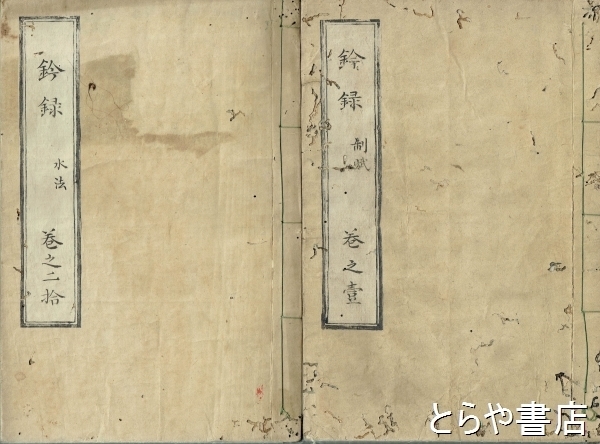 鈐録 制賦 巻之壹
鈐録 水法 巻之二拾
とらや書店